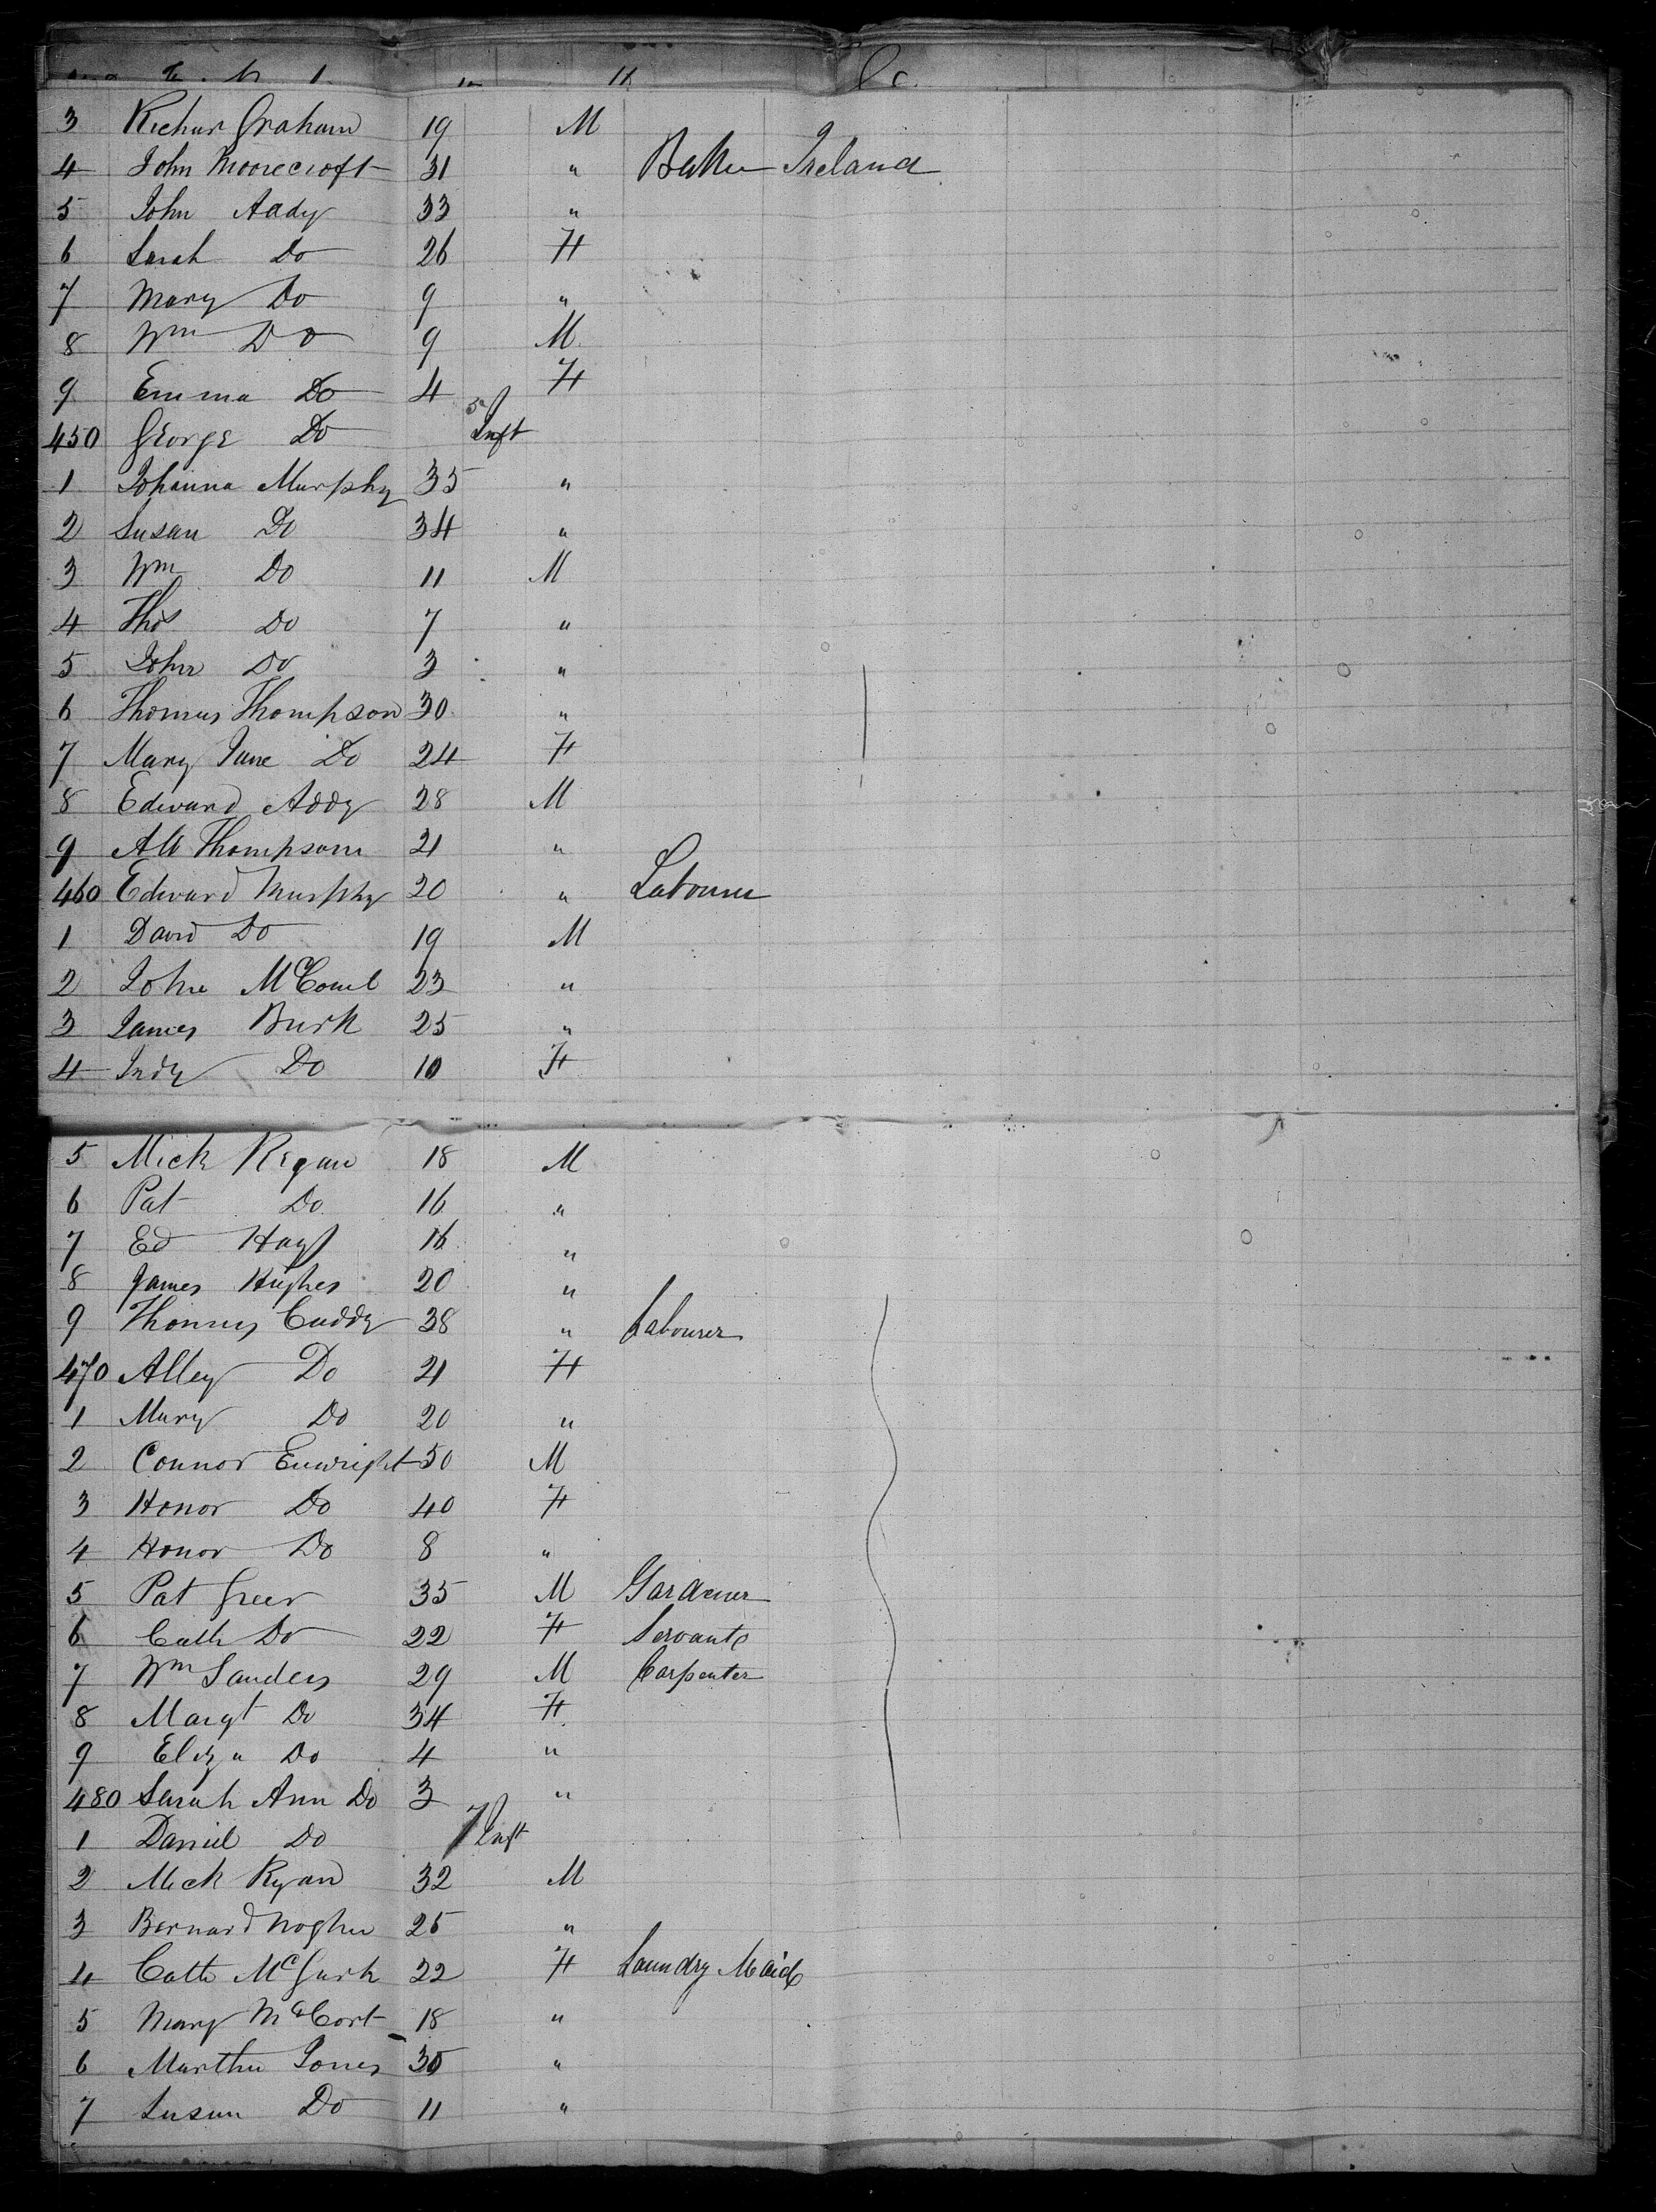 3 Richar Graham 19 M
4 John Moorecroft 31 " Baker Ireland
5 John Addy 33 "
6 Sarah Do 26 F
7 Mary Do 9 "
8 Wm Do 9 M
9 Emma Do 4 F
450 George Do 5 Inft
1 Johanna Murphy 35 "
2 Susan Do 34 "
3 Wm Do 11 M
4 Thos Do 7 "
5 John Do 3 "
6 Thomas Thompson 30 "
7 Mary Jane Do 24 F
8 Edward Addy 28 M
9 Thompson 21 "
460 Edward Murphy 20 " Labourer
1 David Do 19 M
2 John 23 "
3 James Burk 25 "
4 Do 10 F
5 Mick Regan 18 M
6 Pat Do 16 "
7 Ed Hay 16 "
8 James Hughes 20 "
9 Thomas Cuddy 38 " Labourer
470 Alley Do 21 F
1 Mary Do 20 "
2 Connor Enwright 50 M
3 Honor Do 40 F
4 Honor Do 8 "
5 Pat Greer 35 M Gardener
6 Cath Do 22 F Servant
7 Wm Sanders 29 M Carpenter
8 Margt Do 34 F
9 Eliza Do 4 "
480 Sarah Ann Do 3 "
1 Daniel Do 7 Inft
2 Mick Ryan 32 M
3 Bernard 25 "
4 Cath McGurk 22 F Laundry Maid
5 Mary McCort 18 "
6 Martha Jones 30 "
7 Susan Do 11 "